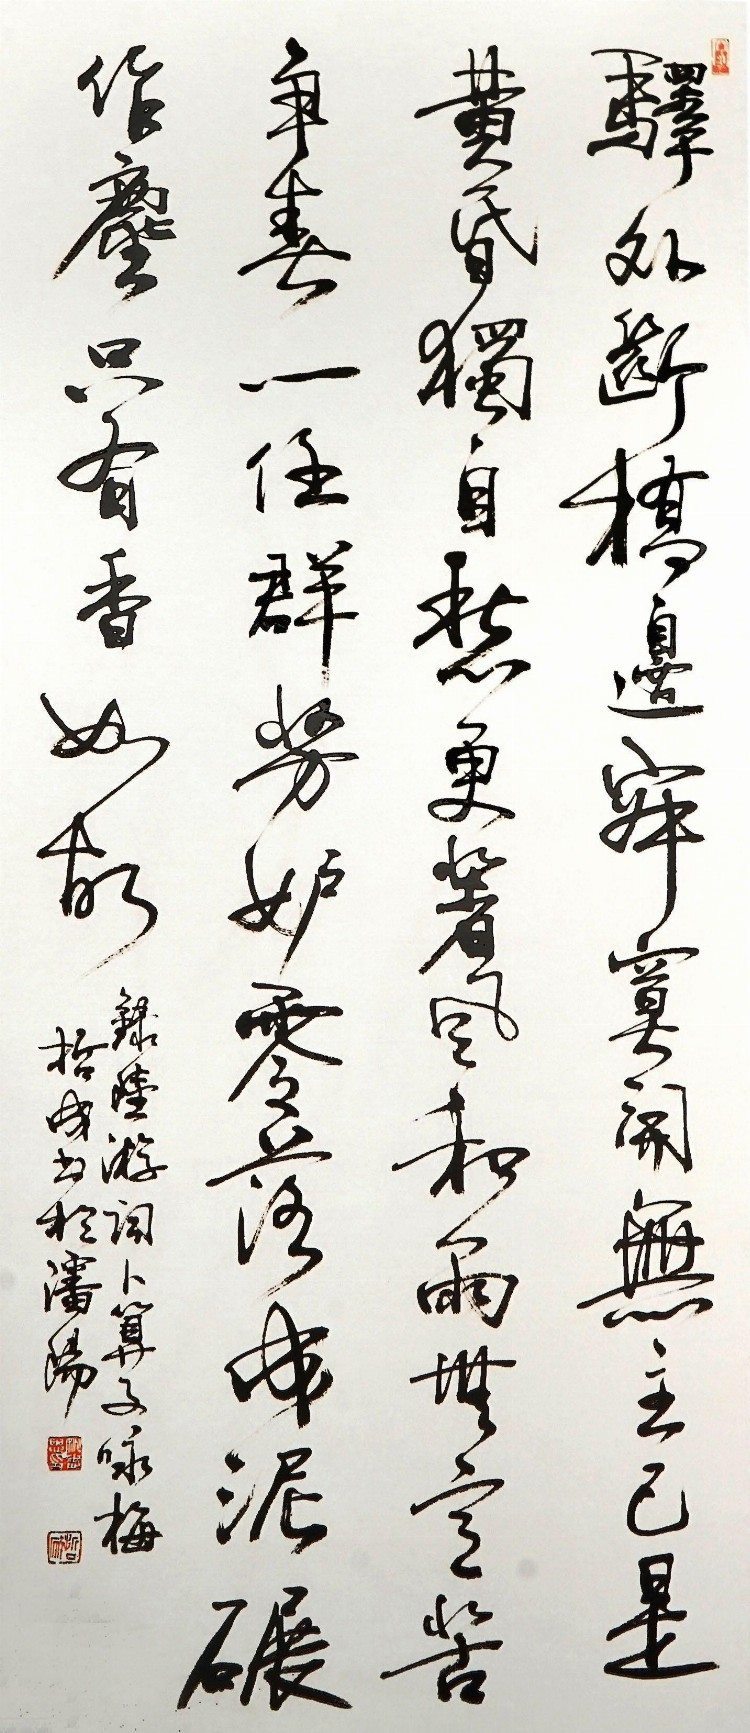 驛外斷橋邊寂寞開無主已是
黄昏獨自愁更著風和雨無意苦
争春一任群芳妒零落成泥碾
作塵只有香如故
錄陸游詞卜算子咏梅
哲成書於瀋陽